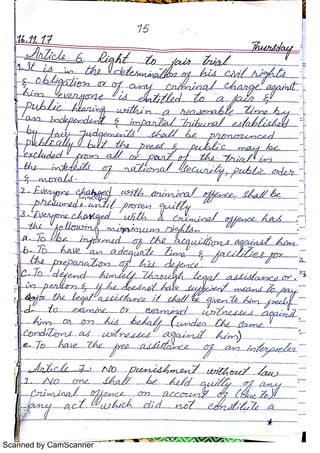 15
16.11.17 Thursday
Article 6 Right to fair trial
1. It is in the determination of his civil rights
& obligation or of any criminal charge against
him everyone is entitled to a fair &
public hearing within a reasonable time by
an independent & impartial tribunal established
by law. Judgements shall be pronounced
publically but the press & public may be
excluded from all or part of the trial in
the interests of national security, public order
& morals.
2. Everyone charged with criminal offence, shall be
presumed innocent until proven guilty
3. Everyone charged with a criminal offence has
the following minimum rights
a. To be informed of the acquistions against him
b. To have an adequate time & facilities for
the preparation of his defence.
c. To defend himself through legal assistance or
in person & if he doesnot have sufficient means to pay
for the legal assistance it shall be given to him freely
d. to examine or examined witnesses against
him or on his behalf (under the same
conditions as witnesses against him)
e. To have the free assistance of an interpreter
Article 7: No punishment without law
1. No one shall be held guilty of any
criminal offence on account of (due to)
any act which did not constitute a
Scanned by CamScanner